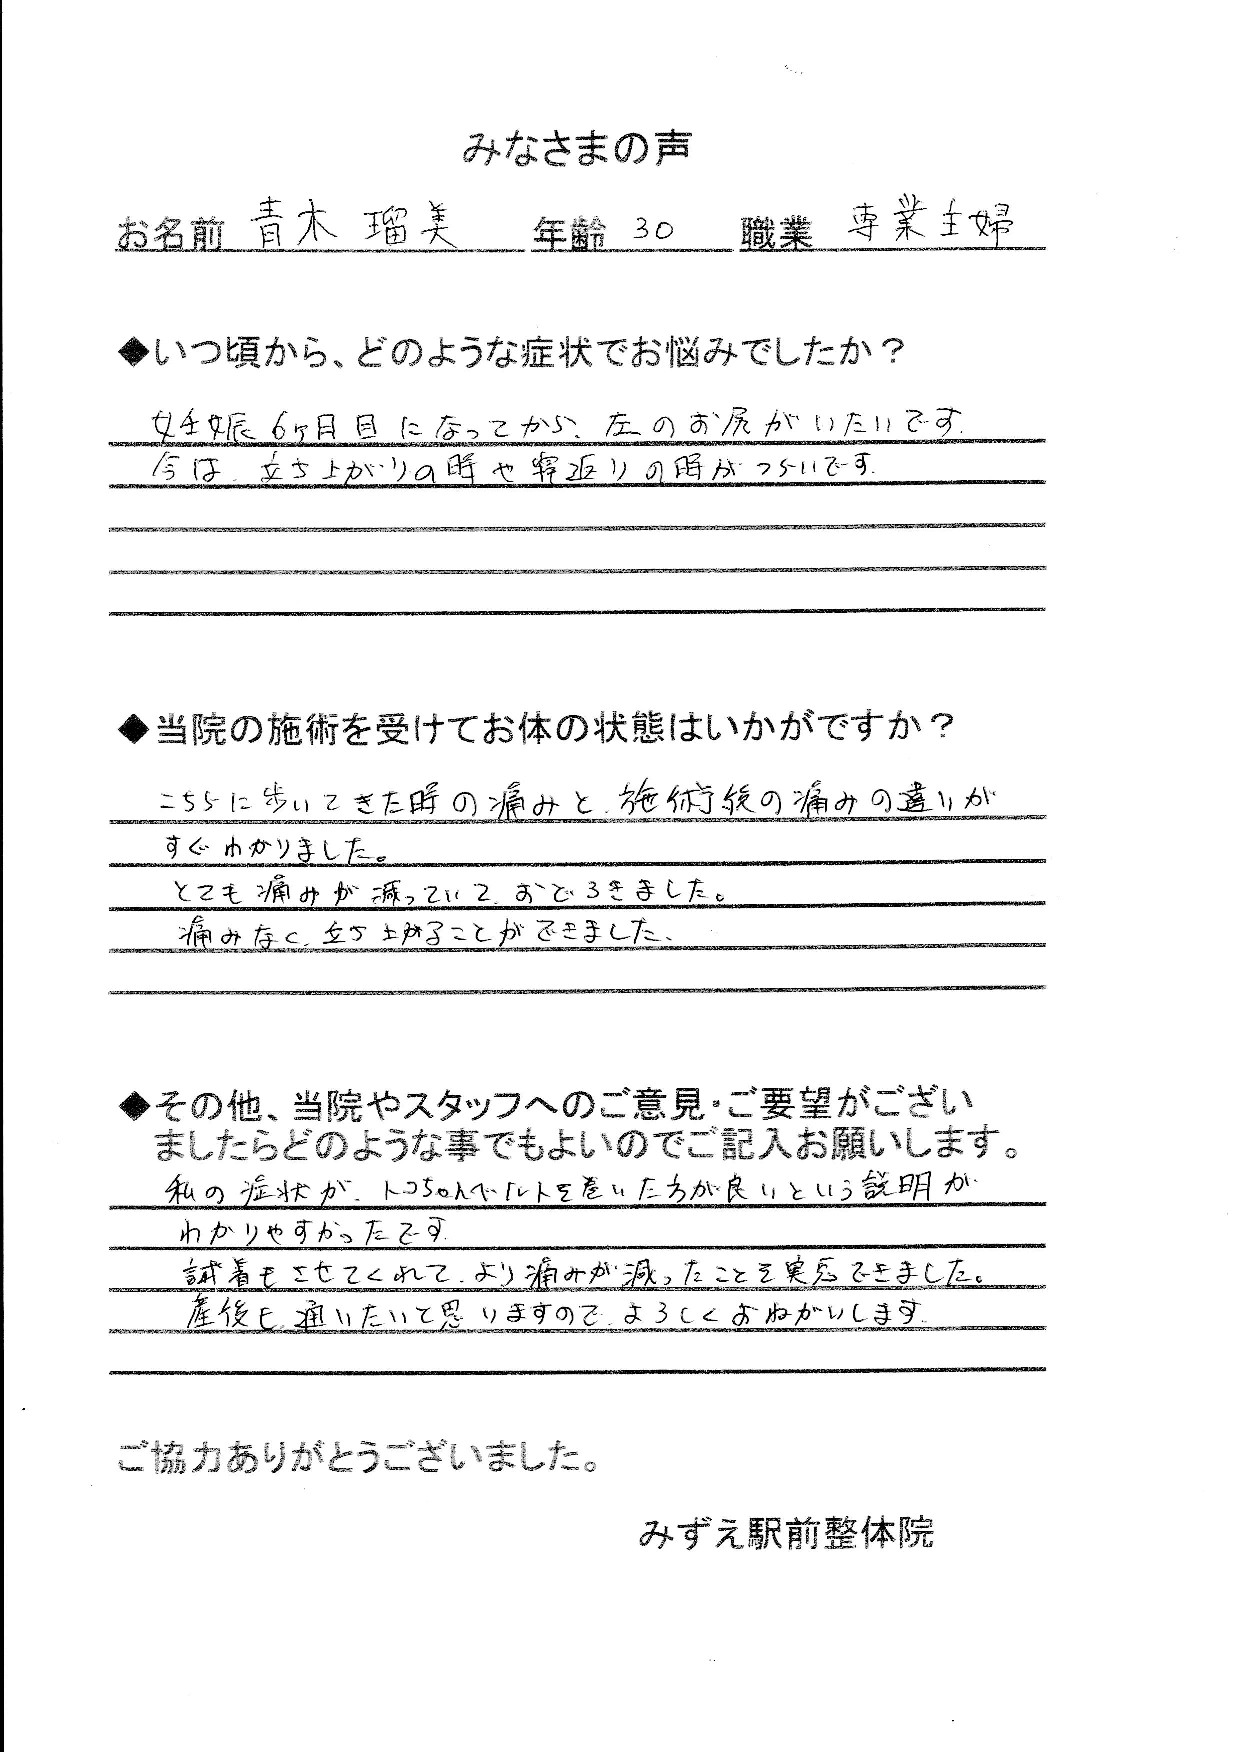 みなさまの声
お名前 青木 瑠美 年齢 30 職業 専業主婦
◆いつ頃から、どのような症状でお悩みでしたか？
妊娠6ヶ月目になってから、左のお尻がいたいです.
今は、立ち上がりの時や寝返りの時がつらいです.
◆当院の施術を受けてお体の状態はいかがですか？
こちらに歩いてきた時の痛みと、施術後の痛みの違いが
すぐわかりました。
とても痛みが減っていて、おどろきました。
痛みなく、立ち上がることができました、
◆その他、当院やスタッフへのご意見・ご要望がござい
ましたらどのような事でもよいのでご記入お願いします。
私の症状が、トコちゃんベルトを巻いた方が良いという説明が
わかりやすかったです
試着もさせてくれて、より痛みが減ったことを実感できました。
産後も、通いたいと思いますので、よろしくおねがいします.
ご協力ありがとうございました。
みずえ駅前整体院